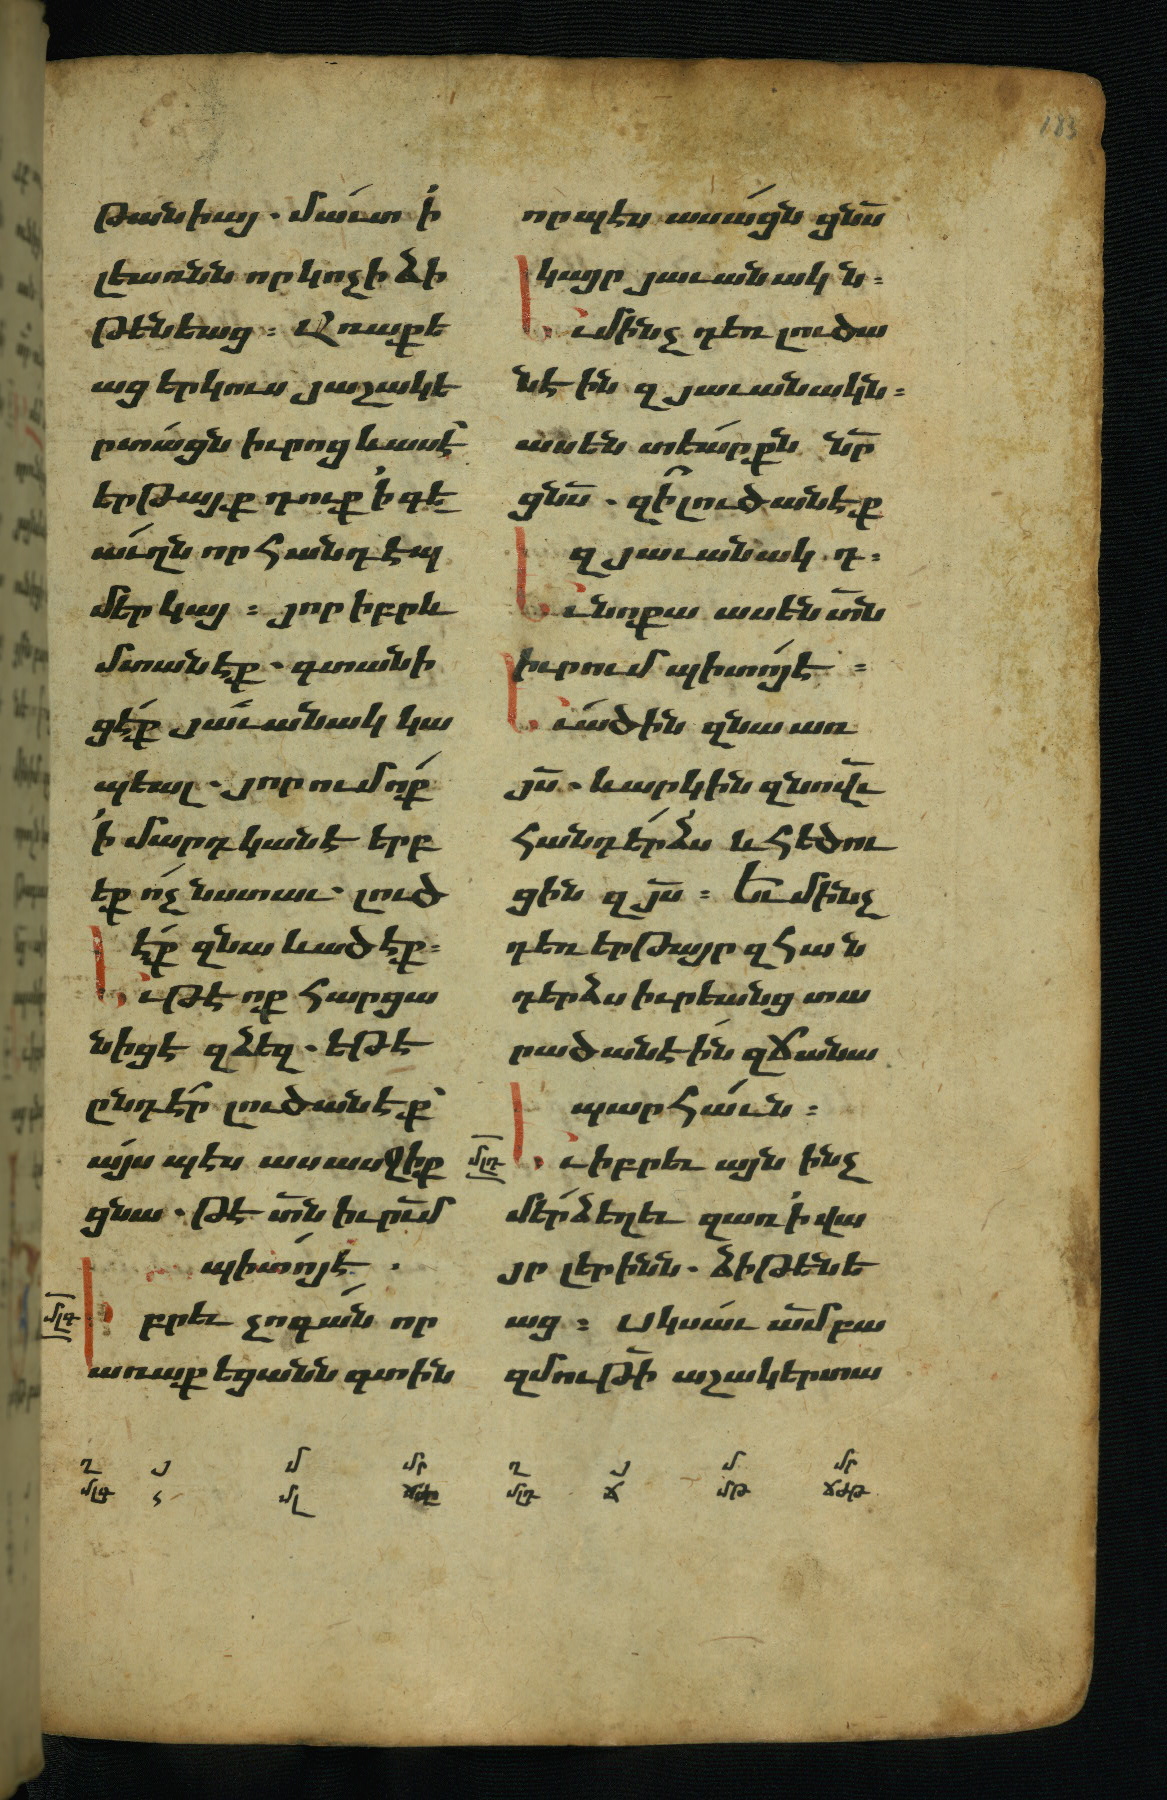 183
թանիայ. մաւտ ի
լեառնն որ կոչի ձի
թենեաց: Առաքե
աց երկուս յաշակե
րտացն իւրոց և ասէ
երթայք դուք ի գե
աւղն որ հանդէպ
մեր կայ: յոր իբրև
մտանէք. գտանի
ցէք յաւանակ կա
պեալ. յորում ոք
ի մարդկանէ երբ
եք ոչ նստաւ. լուծ
էք զնա և ածէք:
ւ թէ ոք հարցա
նիցէ զձեզ. եթէ
ընդէր լուծանէք
այսպէս ասասջիք
ցնա. թէ տն իւրում
պիտոյէ.
մլգ
բրեւ չոգան որ
առաքեցանն գտին
որպէս ասացն ցնս
կայր յաւանակն:
ւ մինչ դեռ լուծա
նէին զյաւանակն:
ասեն տեարքն նր
ցնս. զի լուծանէք
զյաւանակդ:
ւ նոքա ասեն տն
իւրում պիտոյէ:
ւ ածին զնա առ
յս. և արկին զնովւ
հանդերձս և հեծու
ցին զյս: Եւ մինչ
դեռ երթայր զհան
դերձս իւրեանց տա
րածանէին զճանա
պարհաւն:
մլդ
ւ իբրեւ այն ինչ
մերձեղեւ զառ ի վա
յր լերինն. ձիթենե
աց: Սկսաւ ամ բա
զմութի աշակերտա
ղ յ մ մր
մլգ հ մլ
ղ յ մ մր
մլդ ճ մթ ճժթ